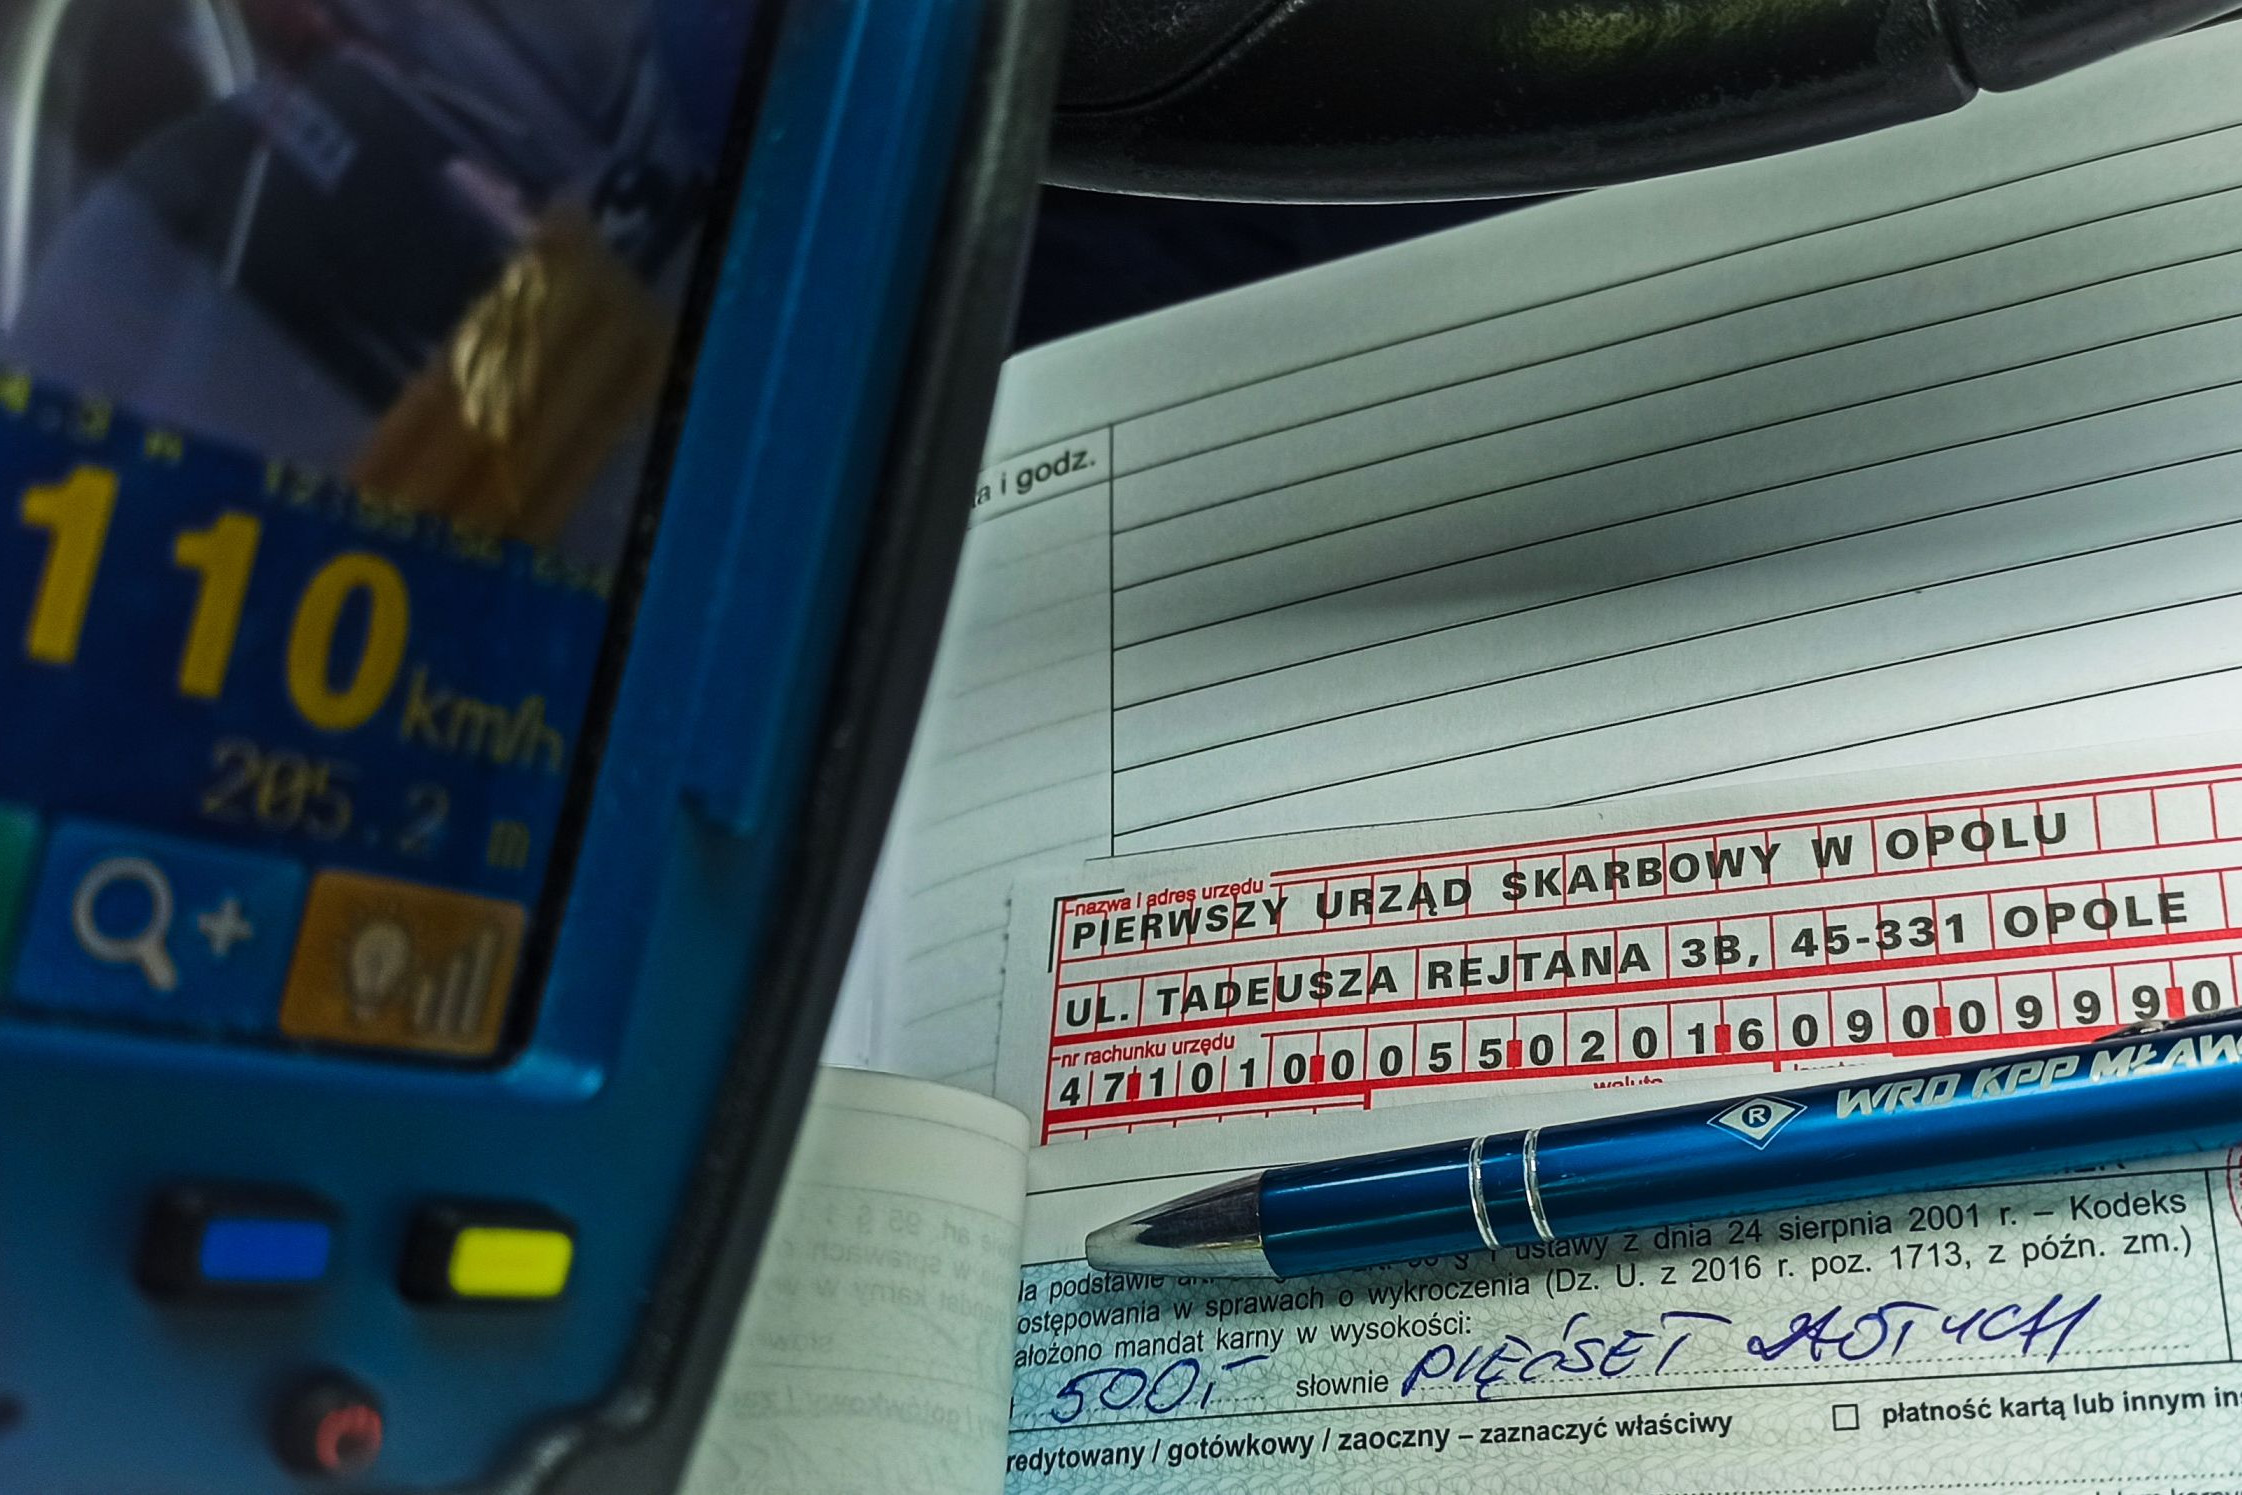 110 km/h
205.2 m
a i godz.
nazwa i adres urzędu
PIERWSZY URZĄD SKARBOWY W OPOLU
UL. TADEUSZA REJTANA 3B, 45-331 OPOLE
nr rachunku urzędu
47 1010 0055 0201 6090 0999 0
waluta
WRD KPP MŁAW
la podstawie § 1 ustawy z dnia 24 sierpnia 2001 r. – Kodeks
ostępowania w sprawach o wykroczenia (Dz. U. z 2016 r. poz. 1713, z późn. zm.)
ałożono mandat karny w wysokości:
500,- słownie PIĘĆSET ZŁOTYCH
redytowany / gotówkowy / zaoczny – zaznaczyć właściwy
płatność kartą lub innym in